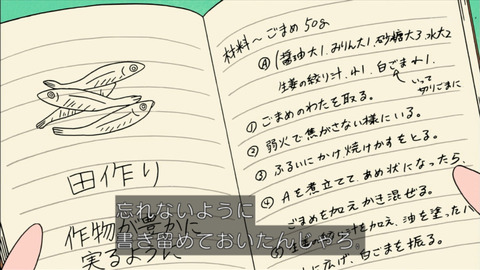 田作り
作物が豊かに
実るように
材料～ごまめ50g
Ⓐ(醤油大1、みりん大1、砂糖大3、水大2
生姜の絞り汁、小1、白ごま小1
いって
切りごまに
① ごまめのわたを取る。
② 弱火で焦がさない様にいる。
③ ふるいにかけ焼けかすをとる。
④ Aを煮立てて、あめ状になったら、
ごまめを加えかき混ぜる。
を加え、油を塗ったバ
に広げ、白ごまを振る。
忘れないように
書き留めておいたんじゃろ